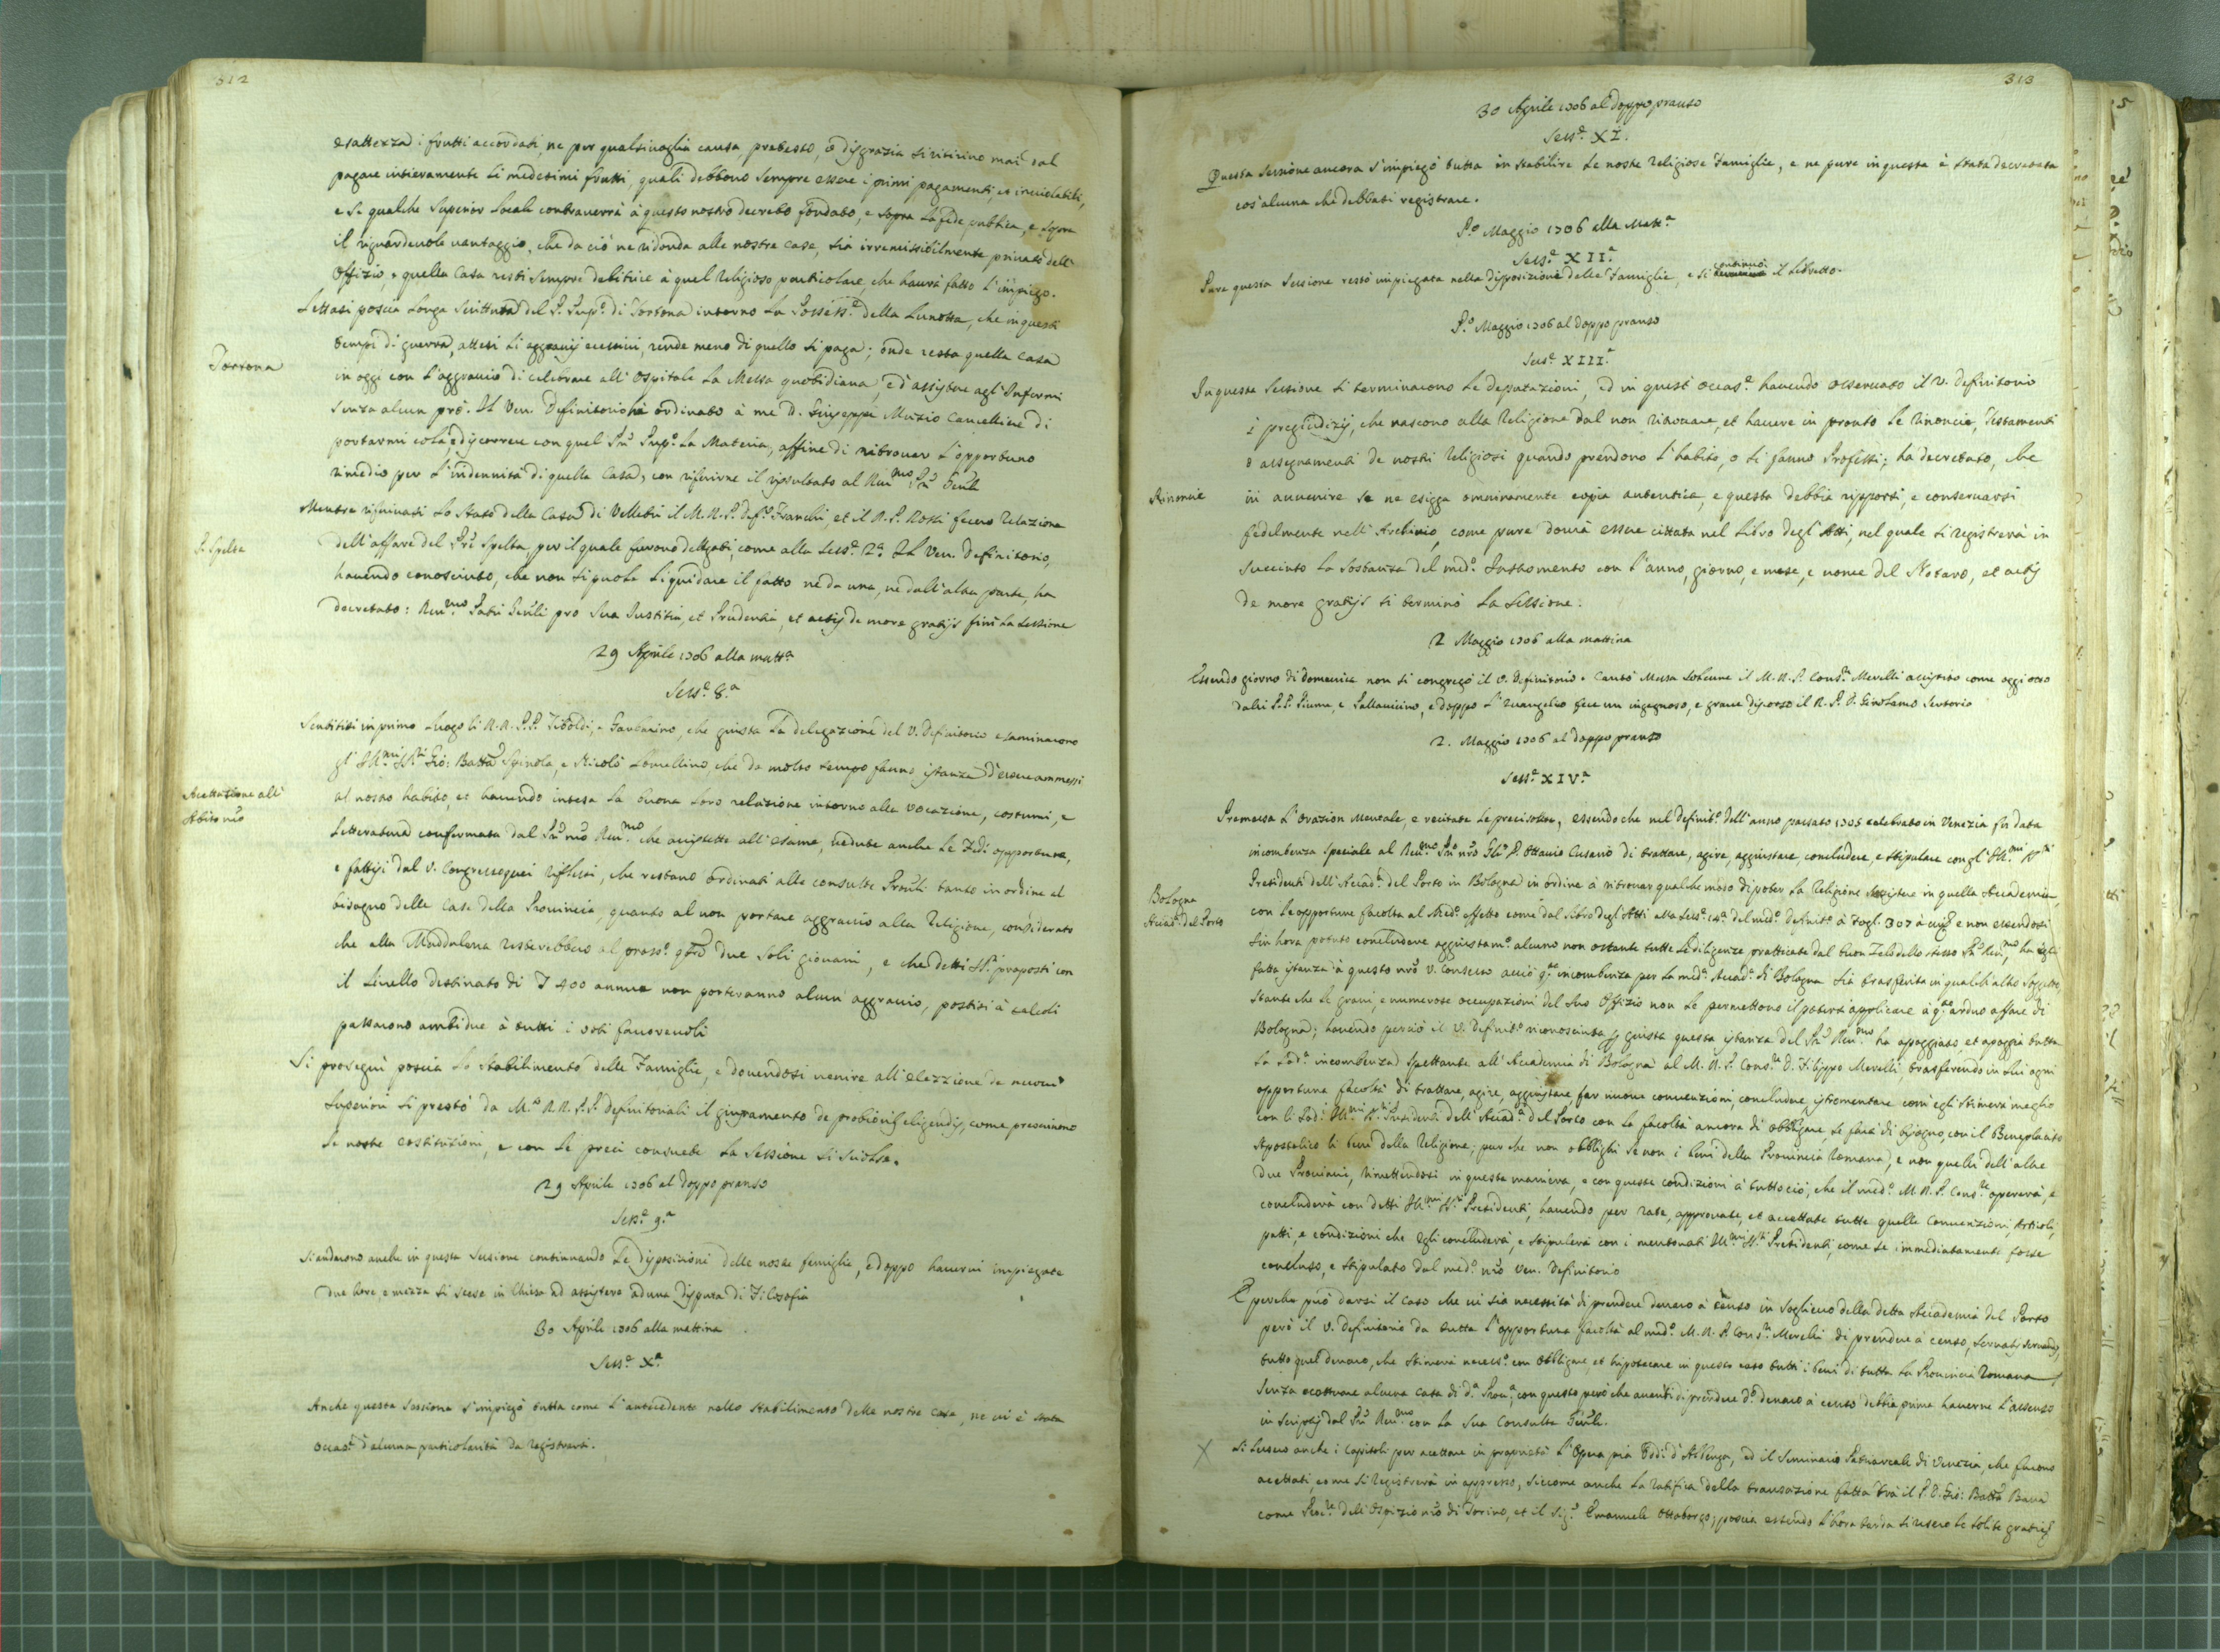 312
esattezza i frutti accordati, ne per qualsivoglia causa, pretesto, o disgrazia si ritirino mai dal
pagare intieramente li medesimi frutti, quali debbono sempre essere i primi pagamenti, et inviolabili,
e se qualche Superior locale contraverrà à questo nostro decreto fondato, e sopra la fede publica, e sopra
il riguardevole vantaggio, che da ciò ne ridonda alle nostre case, sia irremissibilmente privato dell'
Offizio, e quella Casa resti sempre debitrice à quel Religioso particolare, che havrà fatto l'impiego.
Lettasi poscia longa Scrittura del P. Sup.e di Tortona intorno la Possess.e della Lunetta, che in questi
tempi di guerra, attesi li aggravij eccessivi, rende meno di quello si paga; onde resta quella Casa
Tortona
in oggi con l'aggravio di celebrare all'Ospitale la Messa quotidiana, e d'assistere agl'Infermi
senza alcun prò. Il Ven. Definitorio hà ordinato à me D. Giuseppe Muzio Cancelliere di
portarmi colà, e discorrere con quel Prē Sup.e la Materia, affine di ritrovar l'opportuno
rimedio per l'indennità di quella Casa, con riferirne il risultato al Rev.mo Prē Genle
Mentre rifinivasi lo Stato della Casa di Velletri il M.R.P. Def.re Franchi, et il R.P. Rossi fecero relazione
P. Spelta
dell'affare del Prē Spelta, per il quale furono dellegati, come alla Sess.e 2.a Il Ven. Definitorio,
havendo conosciuto, che non si puole liquidare il fatto ne da una, ne dall'altra parte, ha
decretato: Rev.mo Patri Genli pro sua Iustitia, et Prudentia, et actis de more gratijs finì la Sessione
29 Aprile 1706 alla matt.a
Sess.e 8.a
Sentitisi in primo luogo li R.R. P.P. Tiboldi, e Garbarino, che giusta la delegazione del V. Definitorio esaminarono
gl'Ill.mi SS.ri Gio: Batta Spinola, e Nicolò Lomellino, che da molto tempo fanno istanza d'essere ammessi
Acettazione all'
Abito nrō
al nostro habito et havendo intesa la buona loro relazione intorno alla vocazione, costumi, e
letteratura confermata dal Prē nrō Rev.mo che assistette all'esame, vedute anche le Fedi opportune,
e fattisi dal V. Congresso quei riflessi, che restano ordinati alle consulte Provli tanto in ordine al
bisogno delle Case della Provincia, quanto al non portare aggravio alla Religione, considerato
che alla Maddalena resterebbero al pross.o due soli giovani, e che detti SS.ri proposti con
il livello destinato di £ 400 annue non porteranno alcun aggravio, postisi à calcoli
passarono ambidue à tutti i voti favorevoli
Si proseguì poscia lo Stabilimento delle Famiglie, e dovendosi venire all'elezzione de nuovi
Superiori si prestò da M.to R.R. P.P. Definitoriali il giuramento de probioribus eligendis, come prescrivono
le nostre costituzioni, e con le preci consuete la Sessione si sciolse.
29 Aprile 1706 al doppo pranso
Sess.e 9.a
Si andarono anche in questa Sessione continuando le disposizioni delle nostre famiglie, e doppo havervi impiegate
due hore, e mezza si scese in Chiesa ad assistere ad una disputa di Filosofia
30 Aprile 1706 alla mattina
Sess.e X.a
Anche questa Sessione s'impiegò tutta come l'antecedente nello stabilimento delle nostre case, ne vi è stata
occas.e d'alcuna particolarità da registrarsi.
313
30 Aprile 1706 al doppo pranso
Sess.e XI.
Questa Sessione ancora s'impiegò tutta in stabilire le nostre Religiose Famiglie, e ne pure in questa è stata decretata
cos'alcuna che debbasi registrare.
P.o Maggio 1706 alla Matt.a
Sess.e XII.a
Pure questa Sessione restò impiegata nella disposizione delle Famiglie, e si continuò il libretto.
P.o Maggio 1706 al doppo pranso
Sess.e XIII.a
In questa Sessione si terminarono le deputazioni, ed in quest'occas.e havendo osservato il V. Definitorio
i pregiudizij, che nascono alla Religione dal non ritrovare, et havere in pronto le rinoncie, Testamenti
o assegnamenti de nostri Religiosi quando prendono l'habito, o si fanno Professi; ha decretato, che
Rinoncie
in avvenire se ne esigga omninamente copia autentica, e questa debba riporsi, e conservarsi
fedelmente nell'Archivio, come pure dovrà essere cittata nel Libro degl'Atti, nel quale si registrerà in
succinto la sostanza del med.o Instromento con l'anno, giorno, e mese, e nome del Notaro, et actis
de more gratijs si terminò la Sessione.
2 Maggio 1706 alla mattina
Essendo giorno di Domenica non si congregò il V. Definitorio. Cantò Messa solenne il M.R.P. Cons.re Merelli assistito come oggi otto
dalli P.P. Fiume, e Pallavicino, e doppo l'Evangelio fece un ingegnoso, e grave discorso il R.P.D. Girolamo Sertorio
2. Maggio 1706 al doppo pranso
Sess.e XIV.a
Premessa l'orazion mentale, e recitate le preci solite, essendo che nel Definit.o dell'anno passato 1705 celebrato in Venezia fu data
incombenza speciale al Rev.mo Prē nrō Gle D. Ottavio Cusani di trattare, agire, aggiustare, concludere, e stipulare con gl'Ill.mi SS.ri
Presidenti dell'Accad.a del Porto in Bologna in ordine à ritrovar qualche modo di poter la Religione in quella Accademia,
Bologna
Accad.a del Porto
con le opportune facoltà al med.o effetto come dal Libro degl'Atti alla Sess.e 14.a del med.o definit.o à Fogl. 307 e non essendosi
sin hora potuto concludere aggiustam.o alcuno non ostante tutte le diligenze pratticate dal buon Zelo dello stesso Prē Rev.mo, ha egli
fatta istanza à questo nrō V. Consesso acciò q.ta incombenza per la med.a Accad.a di Bologna sia trasferita in qualch'altro soggetto,
stante che le gravi, e numerose occupazioni del suo Offizio non le permettono il potersi applicare à q.to arduo affare di
Bologna; havendo perciò il V. Definit.o riconosciuta per giusta questa istanza del Prē Rev.mo ha apoggiato, et apoggia tutta
la sud.a incombenza spettante all'Accademia di Bologna al M.R.P. Cons.re D. Filippo Merelli, trasferendo in lui ogni
opportuna facoltà di trattare, agire, aggiustare far nuove convenzioni, concludere, istromentare com'egli stimerà meglio
con li sud.i Ill.mi SS.ri Presidenti dell'Accad.a del Porto con la facoltà ancora di obbligare, se farà di bisogno, con il Beneplacito
Apostolico li beni della Religione; pur che non obblighi se non i beni della Provincia Romana, e non quelli dell'altre
due Provincie, rimettendosi in questa maniera, e con queste condizioni à tutto ciò, che il med.o M.R.P. Cons.re opererà, e
concluderà con detti Ill.mi SS.ri Presidenti, havendo per rate, approvate, et accettate tutte quelle convenzioni, Articoli,
patti, e condizioni che egli concluderà, e stipulerà con i mentovati Ill.mi SS.ri Presidenti, come se immediatamente fosse
concluso, e stipulato dal med.o nrō Ven. Definitorio
E perche può darsi il caso che vi sia necessità di prendere denaro à censo in soglievo della detta Accademia del Porto
però il V. Definitorio da tutta l'opportuna facoltà al med.o M.R.P. Cons.re Merelli di prendere à censo, servatis servandis,
tutto quel denaro, che stimerà necess.o con obbligare, et hipotecare in questo caso tutti i beni di tutta la Provincia Romana,
senza eccettuare alcuna casa di d.a Prov.a, con questo però che avanti di prendere d.o denaro à censo debba prima haverne l'assenso
in scriptis dal Prē Rev.mo con la sua Consulta Genle.
X
Si lessero anche i capitoli per accettare in proprietà l'Opera pia Oddi d'Albenga, ed il Seminario Patriarcale di Venezia, che furono
accettati, come si registrerà in appresso, siccome anche la ratifica della transazione fatta trà il P.D. Gio: Batta Bava
come Proc.re dell'Ospizio nrō di Torino, et il Sig.r Emanuele Ottaborgo; poscia essendo l'hora tarda si resero le solite gratie